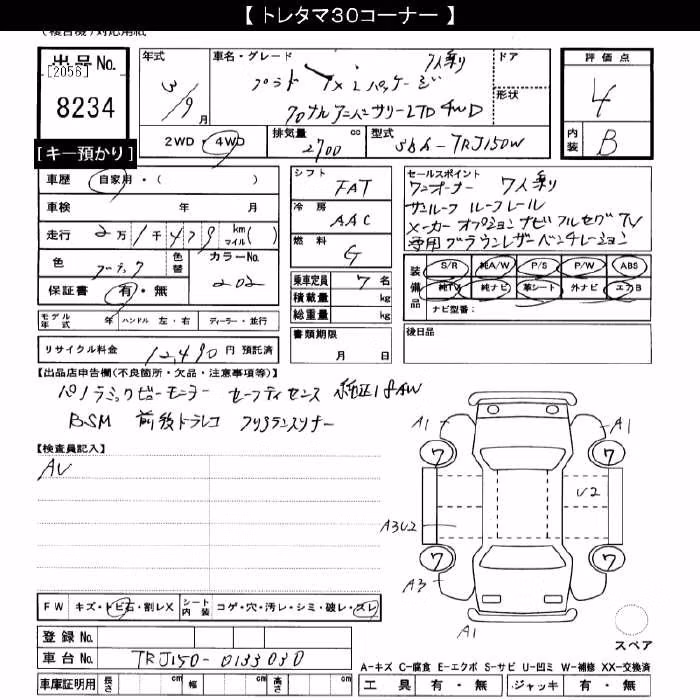 【 トレタマ30コーナー 】
出品No.
[2056]
8234
[キー預かり]
年式 3/9月
車名・グレード プラド TX Lパッケージ 7人乗り
70thアニバーサリーLTD 4WD
ドア
形状
評価点 4
内装 B
2WD・4WD
排気量 2700 cc
型式 3BA-TRJ150W
車歴 自家用・( )
車検 年 月
走行 2万1千479 km マイル( )
色 ブラック 色替 カラーNo. 202
保証書 有・無
モデル年式 年 ハンドル 左・右 ディーラー・並行
リサイクル料金 12,490 円 預託済
シフト FAT
冷房 AAC
燃料 G
乗車定員 7 名
積載量 kg
総重量 kg
書類期限
月 日
セールスポイント
ワンオーナー 7人乗り
サンルーフ ルーフレール
メーカーオプションナビ フルセグTV
専用ブラウンレザー ベンチレーション
装備品
S/R 純A/W P/S P/W ABS
純TV 純ナビ 革シート 外ナビ エアB
ナビ型番:
後日品
【出品店申告欄(不良箇所・欠品・注意事項等)】
パノラミックビューモニター セーフティセンス 純正18AW
BSM 前後ドラレコ クリアランスソナー
【検査員記入】
AV
FW キズ・トビ石・割レX シート内装 コゲ・穴・汚レ・シミ・破レ・スレ
登録No.
車台No. TRJ150-0133030
車庫証明用 長さ cm 幅 cm 高さ cm
A1
A1
7
7
U2
A3U2
7
7
A3
A1
スペア
A-キズ C-腐食 E-エクボ S-サビ U-凹ミ W-補修 XX-交換済
工具 有・無 ジャッキ 有・無